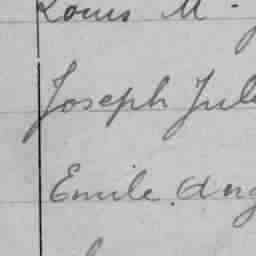 Louis M.
Joseph Jul
Emile Aug